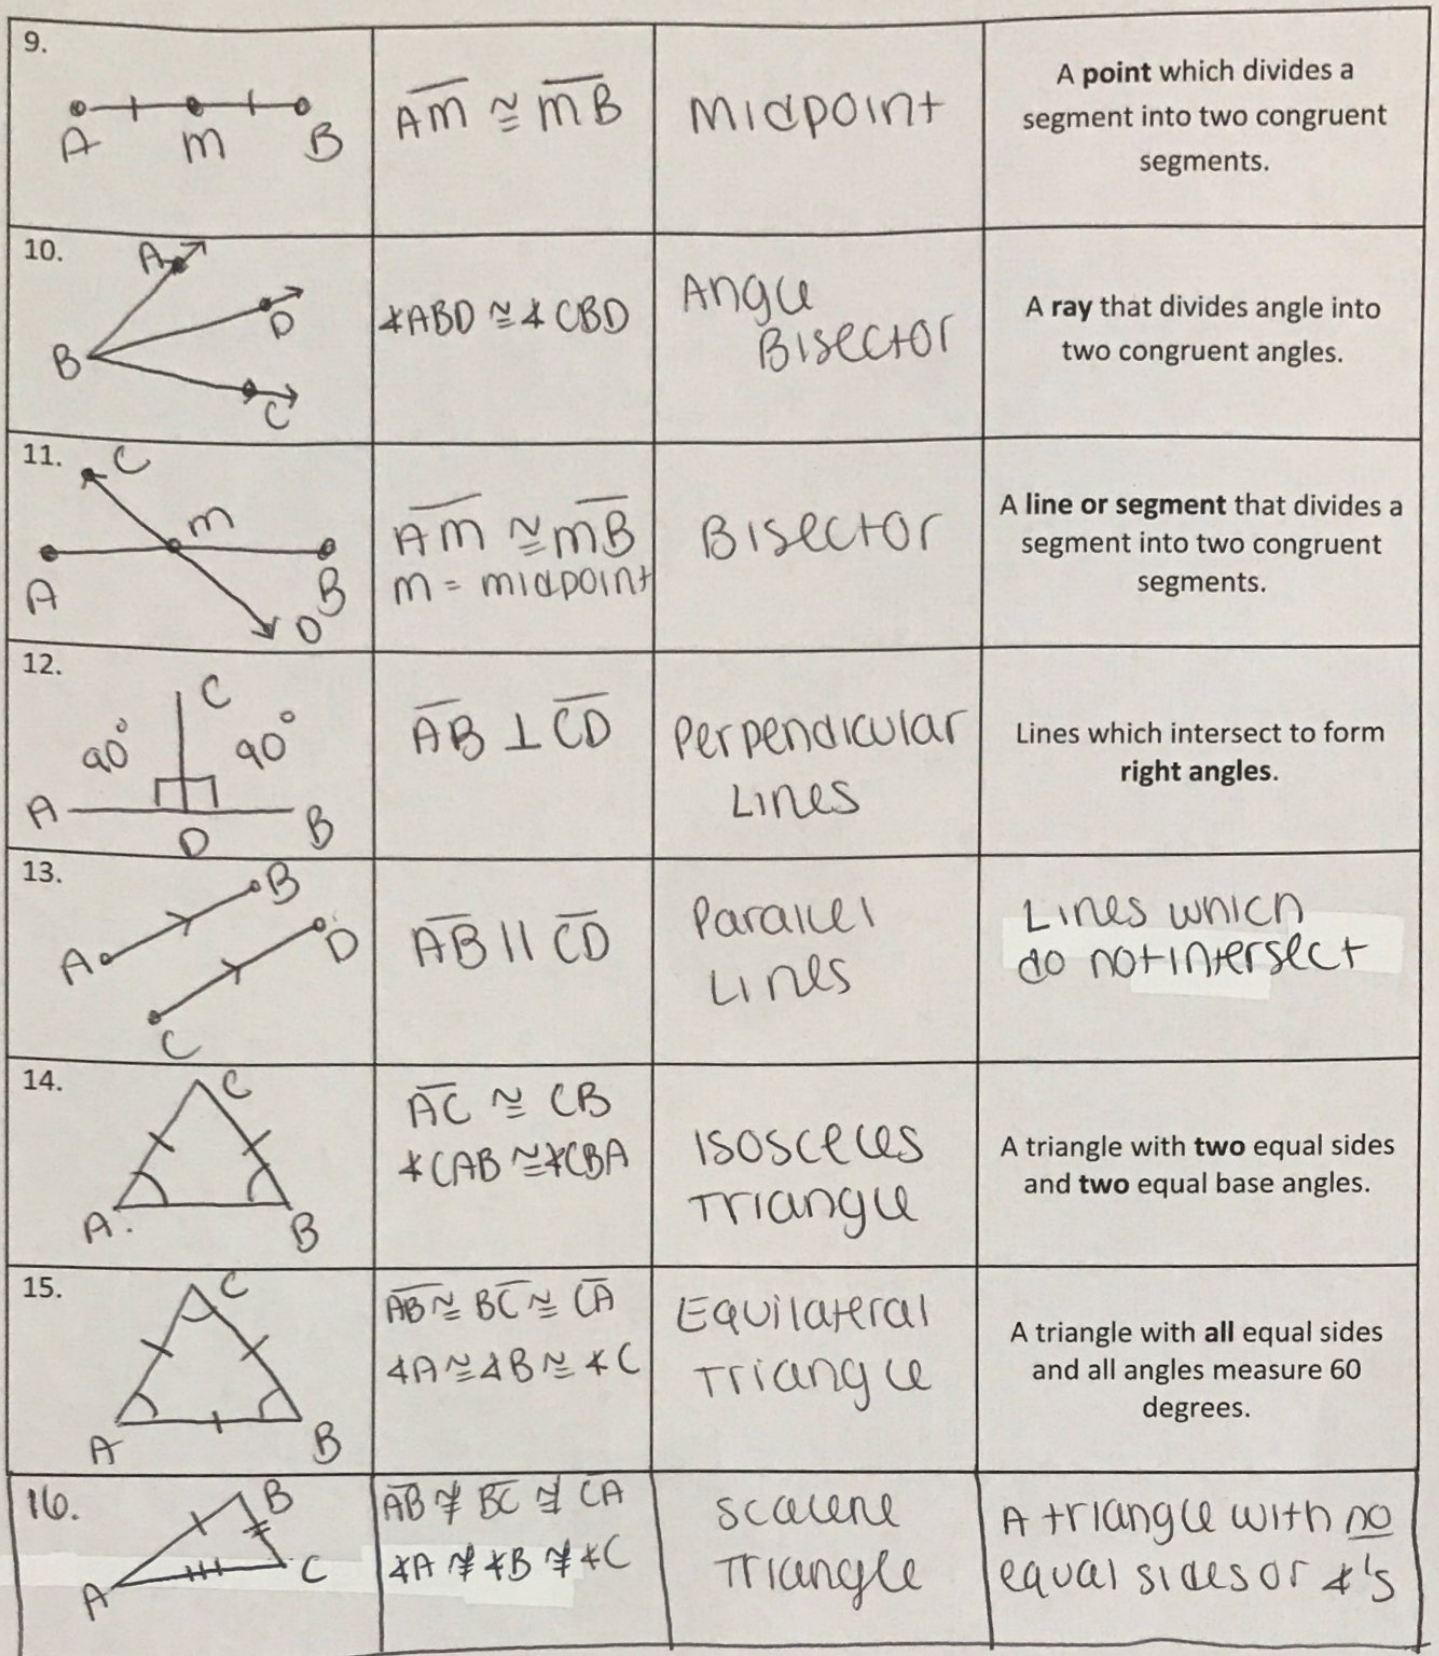 9.
A M B
AM ≅ MB
Midpoint
A point which divides a
segment into two congruent
segments.
10.
A
D
B
C
∡ABD ≅ ∡CBD
Angle
Bisector
A ray that divides angle into
two congruent angles.
11.
C
M
A B
D
AM ≅ MB
M = midpoint
Bisector
A line or segment that divides a
segment into two congruent
segments.
12.
C
90° 90°
A B
D
AB ⊥ CD
Perpendicular
Lines
Lines which intersect to form
right angles.
13.
B
A D
C
AB || CD
Parallel
Lines
Lines which
do not intersect
14.
C
A. B
AC ≅ CB
∡CAB ≅ ∡CBA
Isosceles
Triangle
A triangle with two equal sides
and two equal base angles.
15.
C
A B
AB ≅ BC ≅ CA
∡A ≅ ∡B ≅ ∡C
Equilateral
Triangle
A triangle with all equal sides
and all angles measure 60
degrees.
16.
B
A C
AB ≇ BC ≇ CA
∡A ≇ ∡B ≇ ∡C
Scalene
Triangle
A triangle with no
equal sides or ∡'s